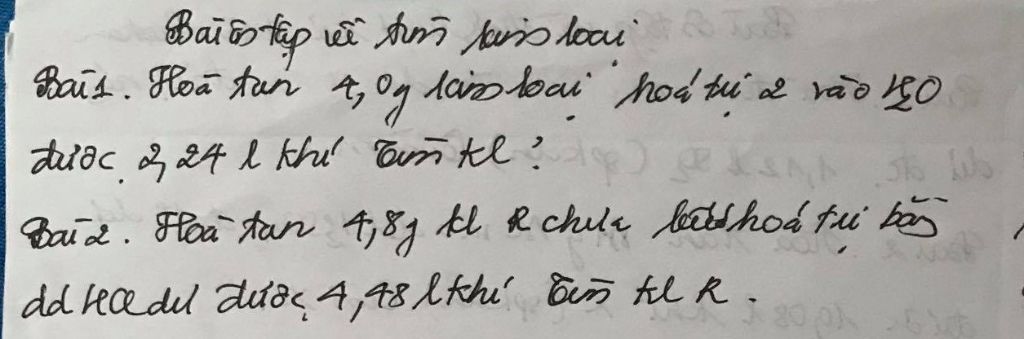 Bài tập về tìm kim loại
Bài 1. Hoà tan 4,0g kim loại hoá trị 2 vào H2O
được 2,24 l khí Tìm kl?
Bài 2. Hoà tan 4,8g kl R chưa biết hoá trị bằng
dd HCl dư được 4,48 l khí Tìm kl R.